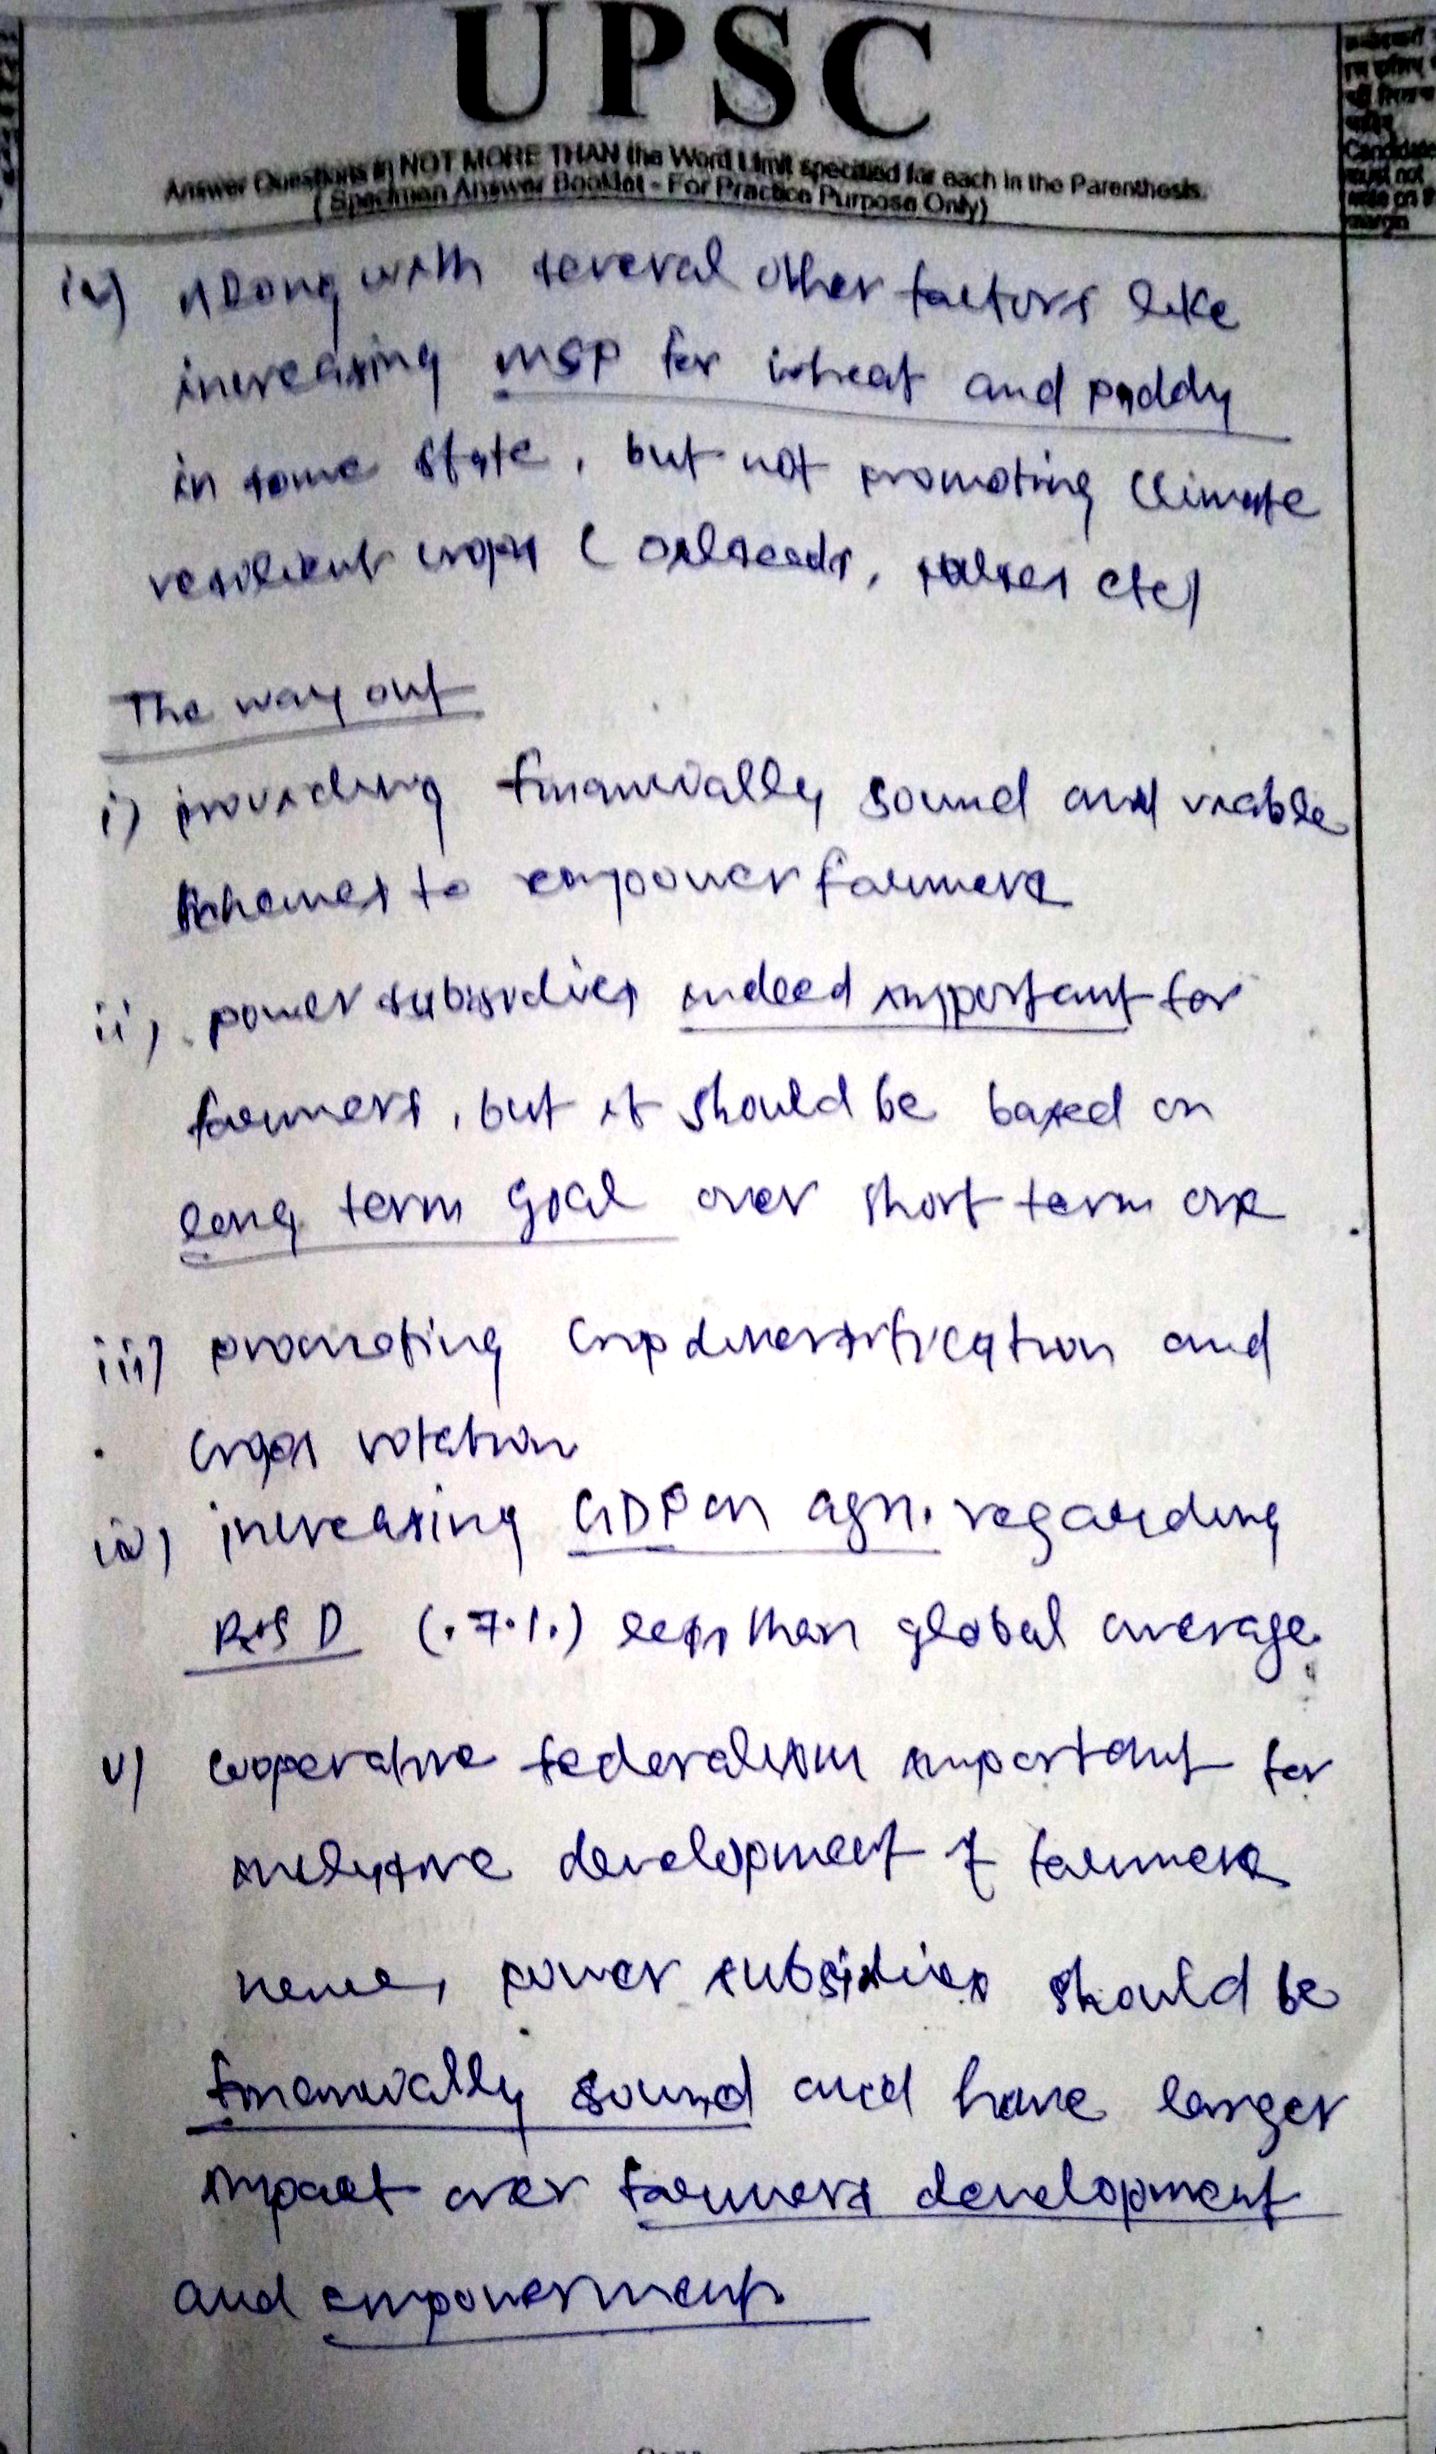 UPSC
Answer Questions in NOT MORE THAN the Word Limit specified for each in the Parenthesis.
(Specimen Answer Booklet - For Practice Purpose Only)
Candidate
must not
write on the
margin
iv) Along with several other factors like
increasing MSP for wheat and paddy
in some state, but not promoting climate
resilient crops (oilseeds, pulses etc)
The way out
i) providing financially sound and viable
schemes to empower farmers
ii) power subsidies indeed important for
farmers, but it should be based on
long term goal over short term one
iii) promoting crop diversification and
crops rotation
iv) increasing GDP on agri. regarding
R&D (.7%) less than global average.
v) cooperative federalism important for
inclusive development of farmers
hence, power subsidies should be
financially sound and have larger
impact over farmers development
and empowerment.